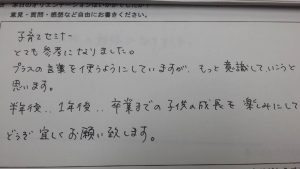 本日のオリエンテーションはいかがでしたか?
意見・質問・感想など自由にお書きください。
子育てセミナー
とても参考になりました。
プラスの言葉を使うようにしていますが、もっと意識していこうと
思います。
半年後‥1年後‥卒業までの子供の成長を楽しみにして
どうぞ宜しくお願い致します。